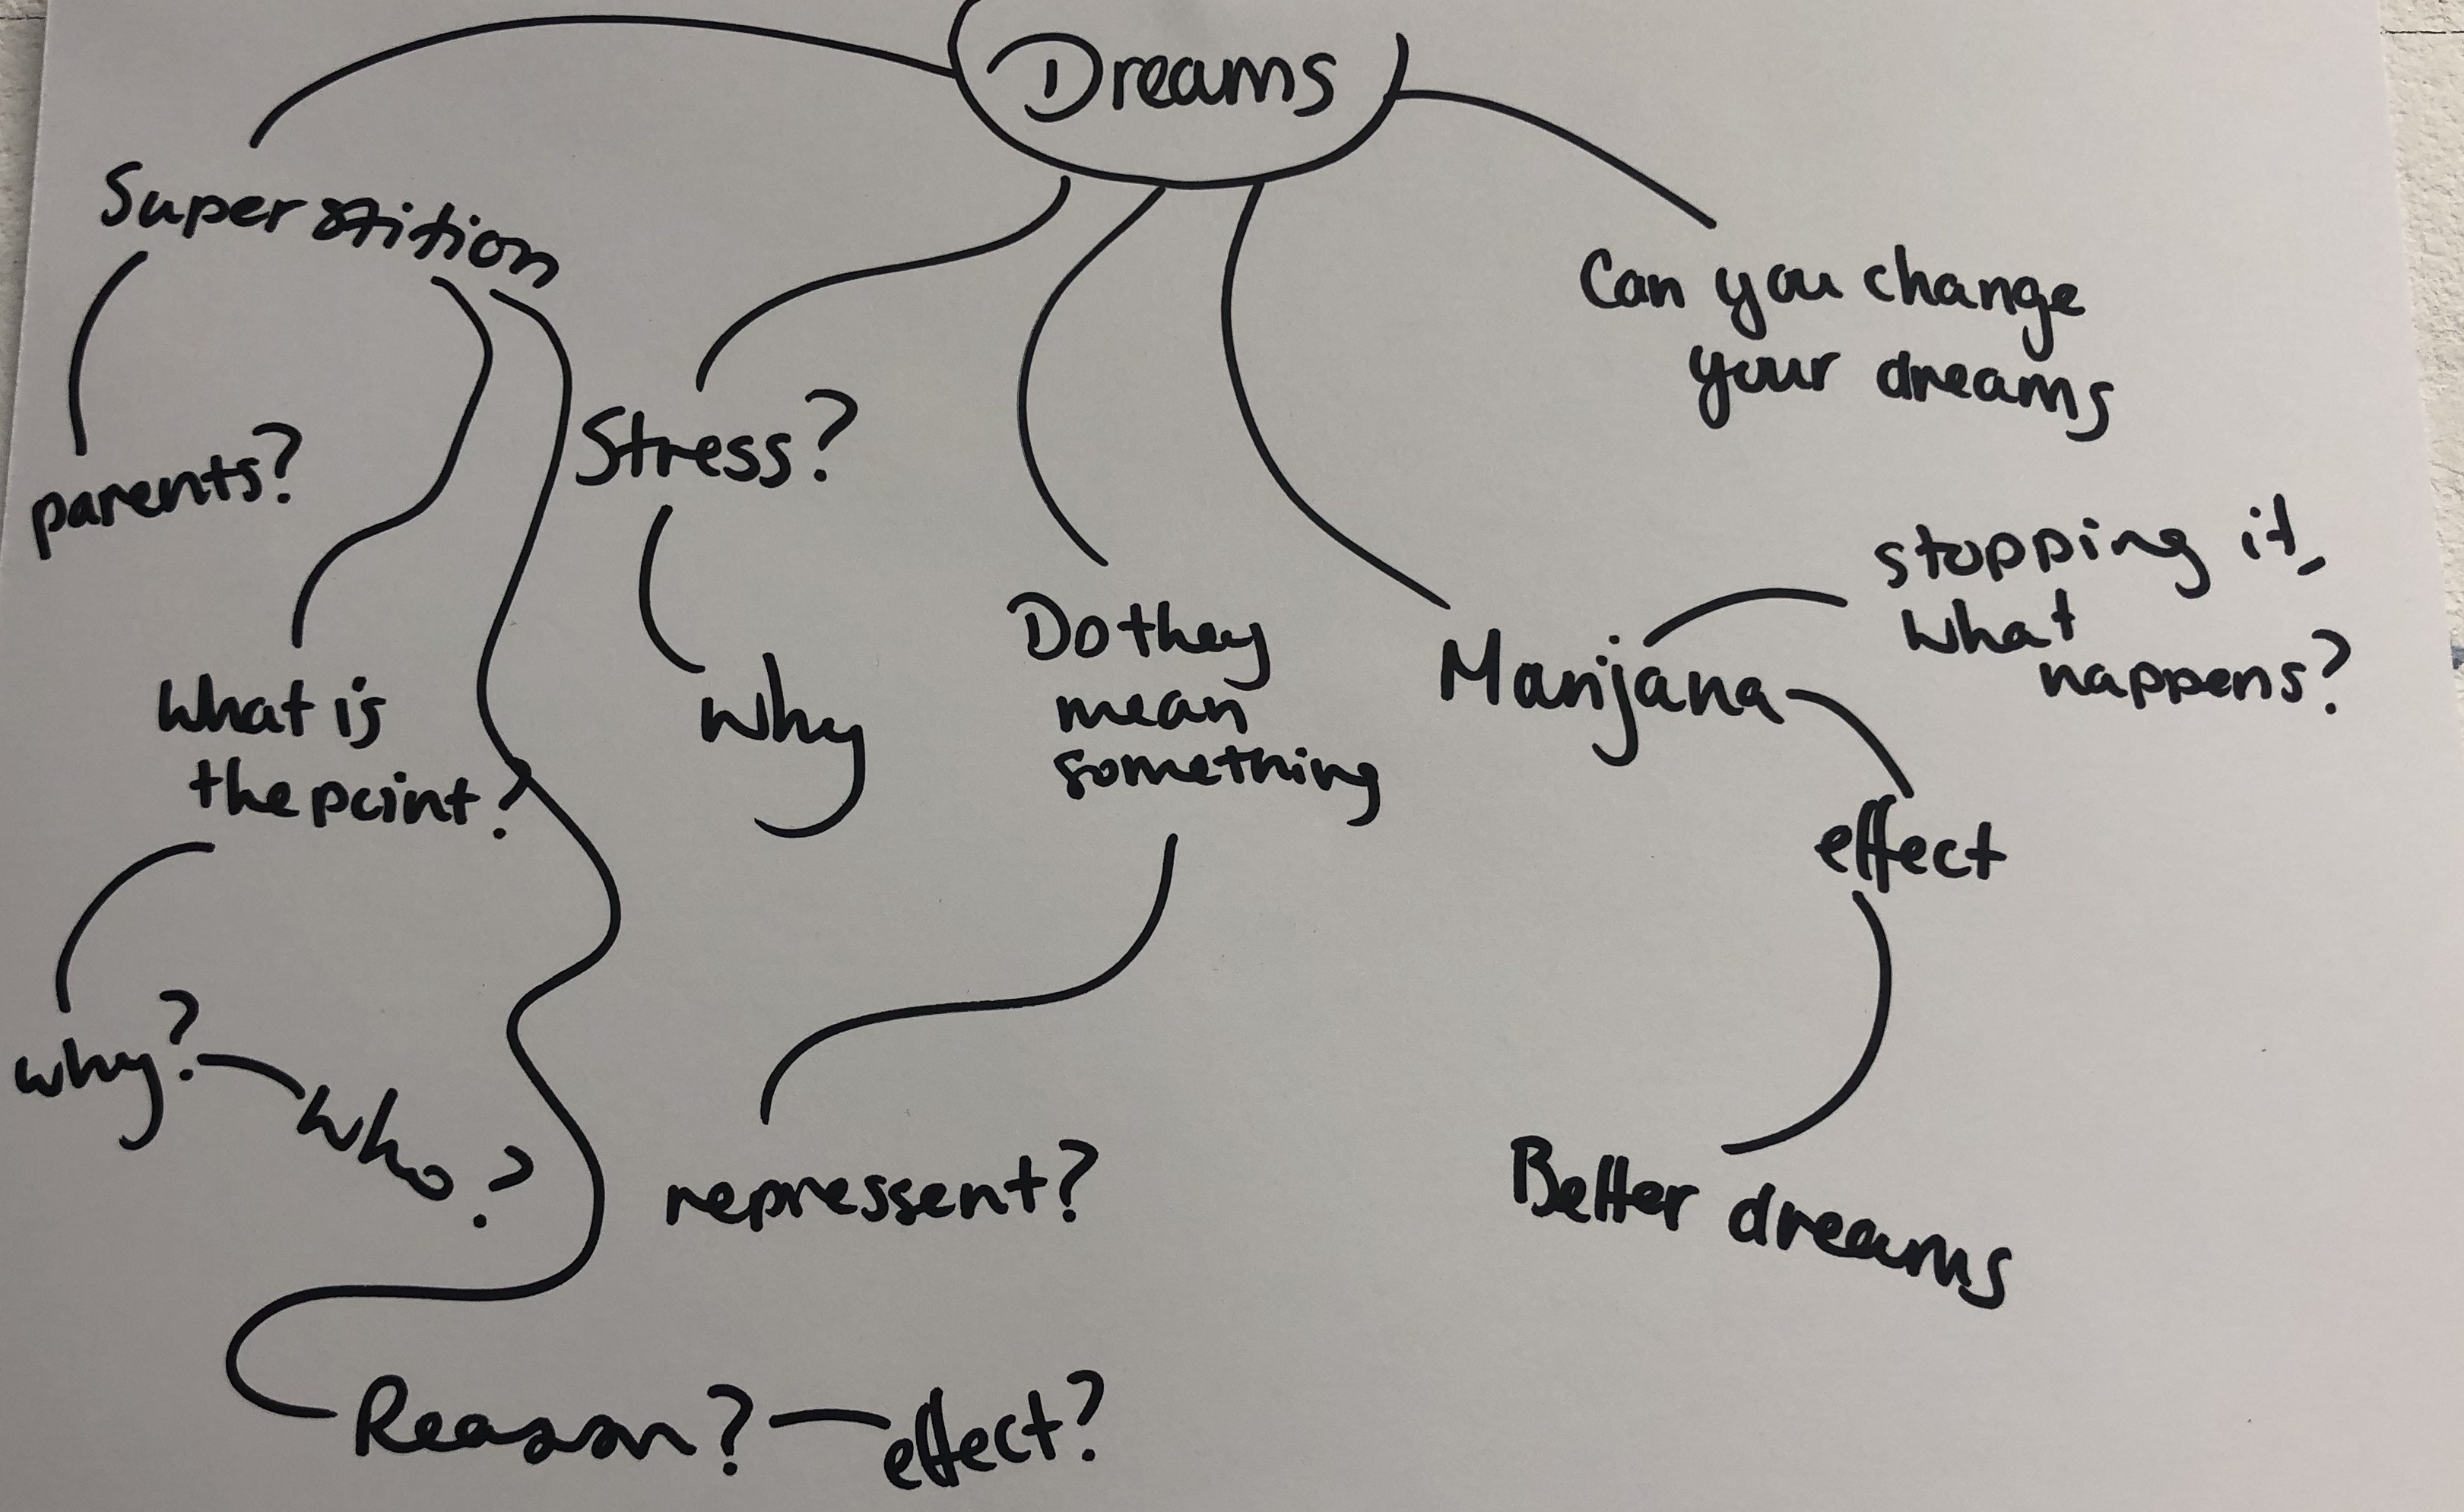 Dreams
Superstition
parents?
What is
the point?
why?
who?
Reason?
effect?
Stress?
why
Do they
mean
something
repressent?
Marijana
stopping it,
what
happens?
effect
Better dreams
Can you change
your dreams